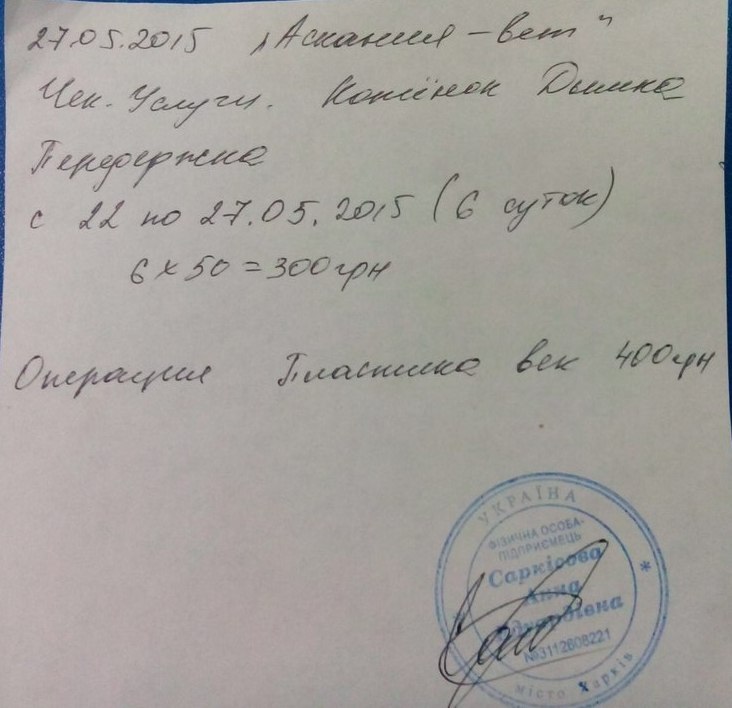 27.05.2015 „Аскания-вет"
Чек. Услуги. Котёнок Дымка
Передержка
с 22 по 27.05.2015 (6 суток)
6 x 50 = 300 грн
Операция Пластика век 400 грн
УКРАЇНА
ФІЗИЧНА ОСОБА-
ПІДПРИЄМЕЦЬ
Саркісова
Анна
№3112608221
місто Харків